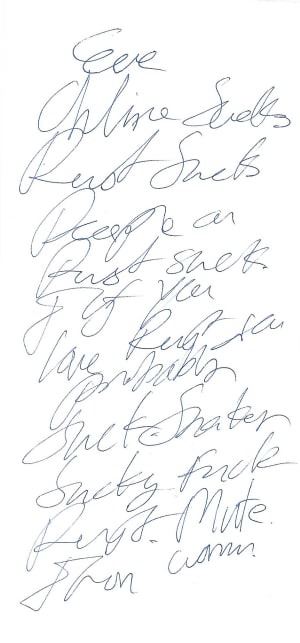 Eve
Online Sucks
Rust Sucks
People on
Rust suck.
If you
love Rust you
probably
suck
Sucky Fuck
Rust. Mute.